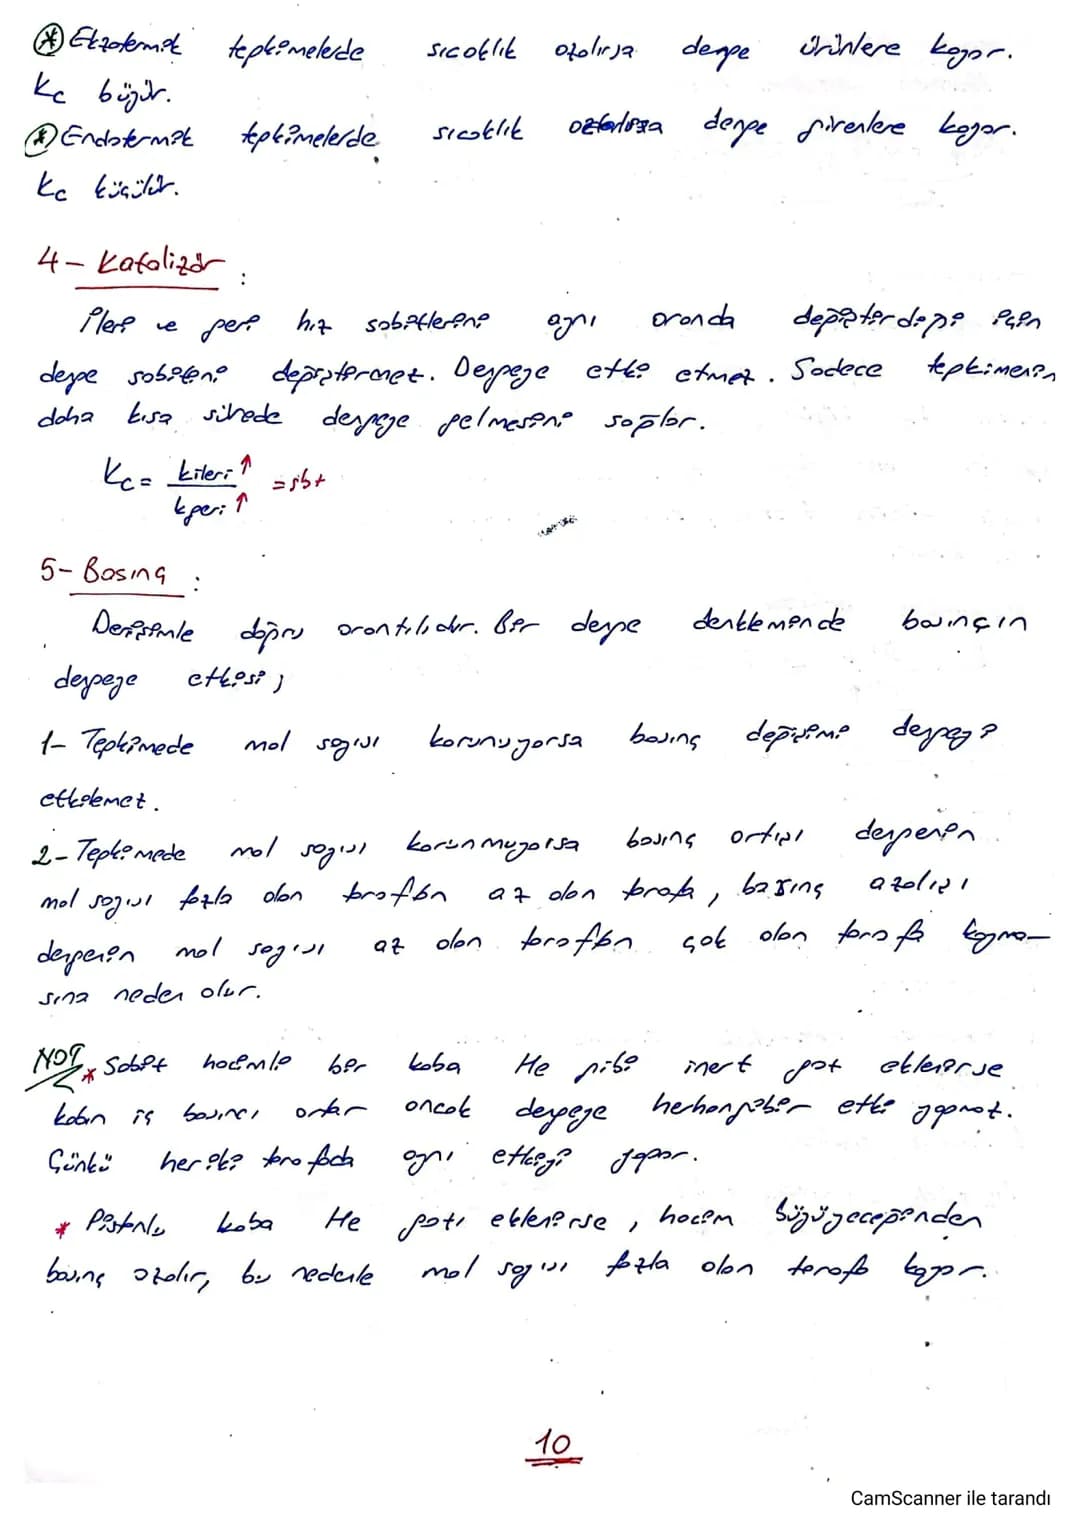 * Ekzotermik tepkimelerde sıcaklık azalırsa denge ürünlere kayar.
Kc büyür.
* Endotermik tepkimelerde sıcaklık azalırsa denge girenlere kayar.
Kc küçülür.
4- Katalizör :
İleri ve geri hız sabitlerini aynı oranda değiştirdiği için
denge sabitini değiştirmez. Dengeye etki etmez. Sadece tepkimenin
daha kısa sürede dengeye gelmesini sağlar.
Kc = kileri ↑ / kgeri ↑ = sbt
5- Basınç :
Derişimle doğru orantılıdır. Bir denge denkleminde basınçın
dengeye etkisi ;
1- Tepkimede mol sayısı korunuyorsa basınç değişimi dengeyi
etkilemez.
2- Tepkimede mol sayısı korunmuyorsa basınç artışı dengenin
mol sayısı fazla olan taraftan az olan tarafa, basınç azalışı
dengenin mol sayısı az olan taraftan çok olan tarafa kayma-
sına neden olur.
NOT * Sabit hacimli bir kaba He gibi inert gaz eklenirse
kabın iç basıncı artar ancak dengeye herhangibir etki yapmaz.
Çünkü her iki tarafada aynı etkeyi yapar.
* Pistonlu kaba He gazı eklenirse, hacim büyüyeceğinden
basınç azalır, bu nedenle mol sayısı fazla olan tarafa kayar.
10
CamScanner ile tarandı